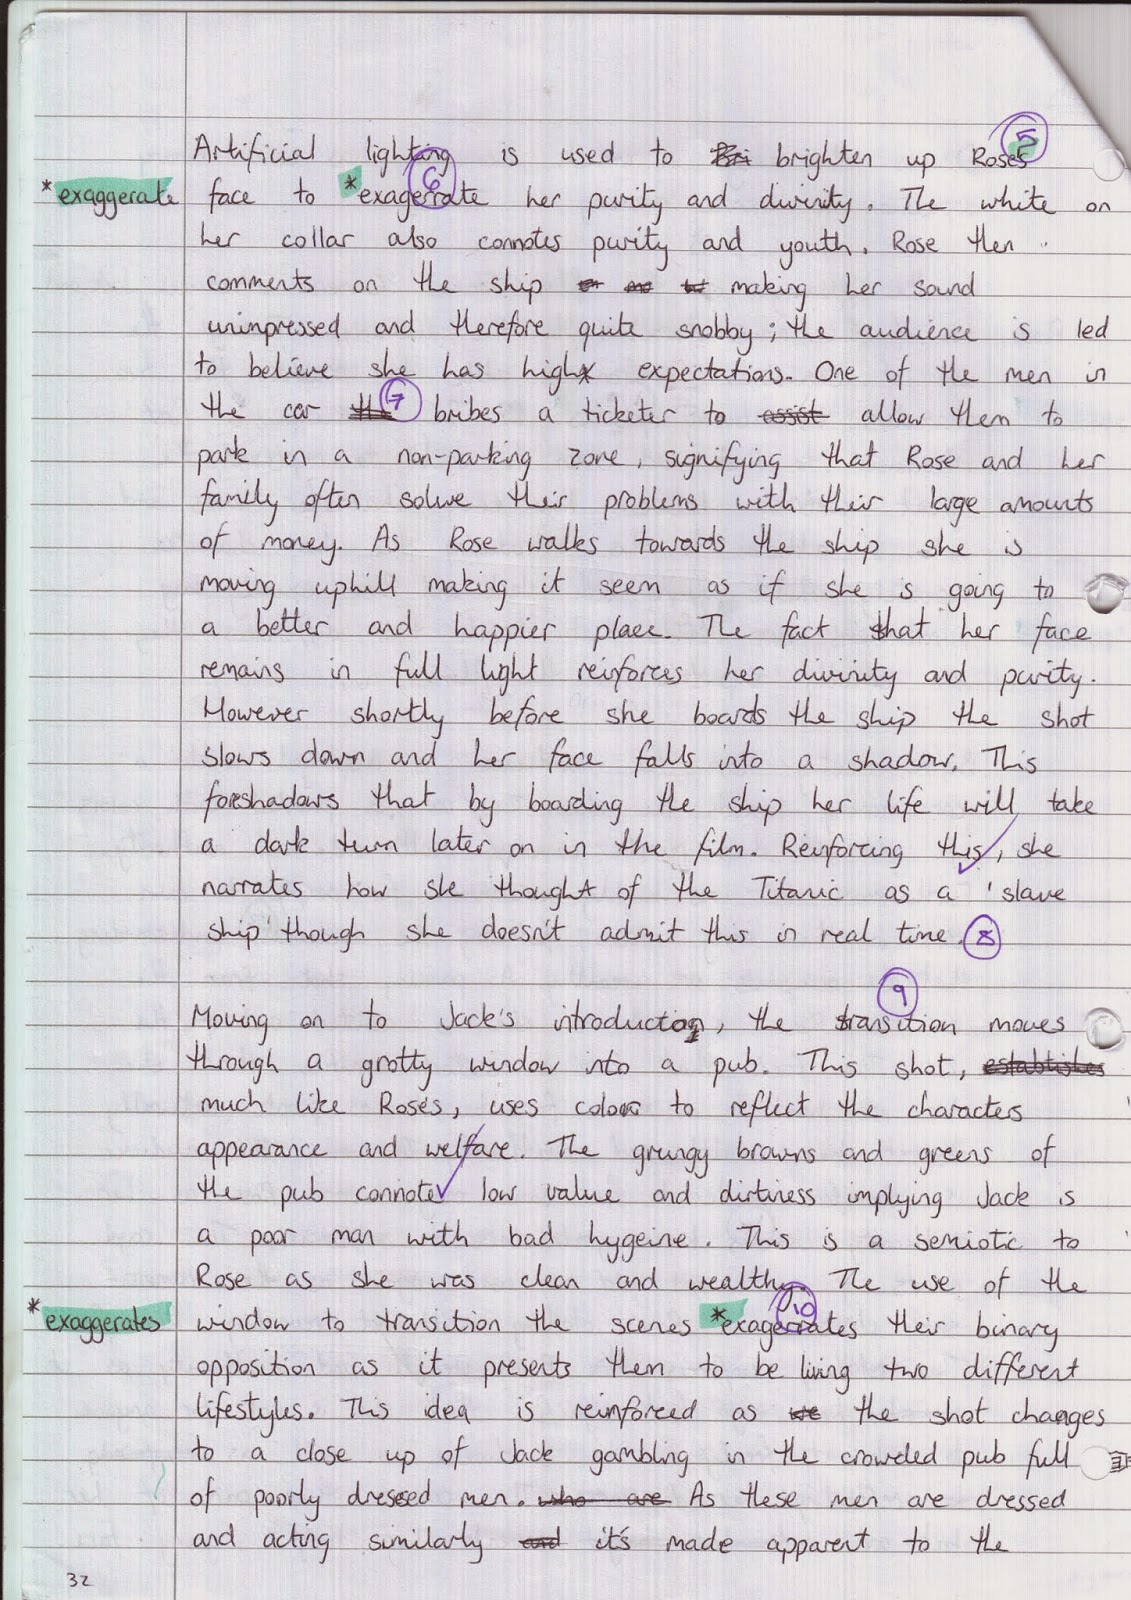 Artificial lighting is used to brighten up Roses 5
*exaggerate face to *exagerrate 6 her purity and divinity. The white on
her collar also connotes purity and youth. Rose then
comments on the ship making her sound
unimpressed and therefore quite snobby; the audience is led
to believe she has high expectations. One of the men in
the car the 7 bribes a ticketer to assist allow them to
park in a non-parking zone, signifying that Rose and her
family often solve their problems with their large amounts
of money. As Rose walks towards the ship she is
moving uphill making it seem as if she is going to
a better and happier place. The fact that her face
remains in full light reinforces her divinity and purity.
However shortly before she boards the ship the shot
slows down and her face falls into a shadow. This
foreshadows that by boarding the ship her life will take
a dark turn later on in the film. Reinforcing this, she
narrates how she thought of the Titanic as a 'slave
ship' though she doesn't admit this in real time. 8
9
Moving on to Jack's introduction, the transition moves
through a grotty window into a pub. This shot, establishes
much like Rose's, uses colour to reflect the characters
appearance and welfare. The grungy browns and greens of
the pub connote low value and dirtiness implying Jack is
a poor man with bad hygeine. This is a semiotic to
Rose as she was clean and wealthy. The use of the
*exaggerates window to transition the scenes *exagerrates 10 their binary
opposition as it presents them to be living two different
lifestyles. This idea is reinforced as we the shot changes
to a close up of Jack gambling in the crowded pub full
of poorly dressed men. who are As these men are dressed
and acting similarly and it's made apparent to the
32